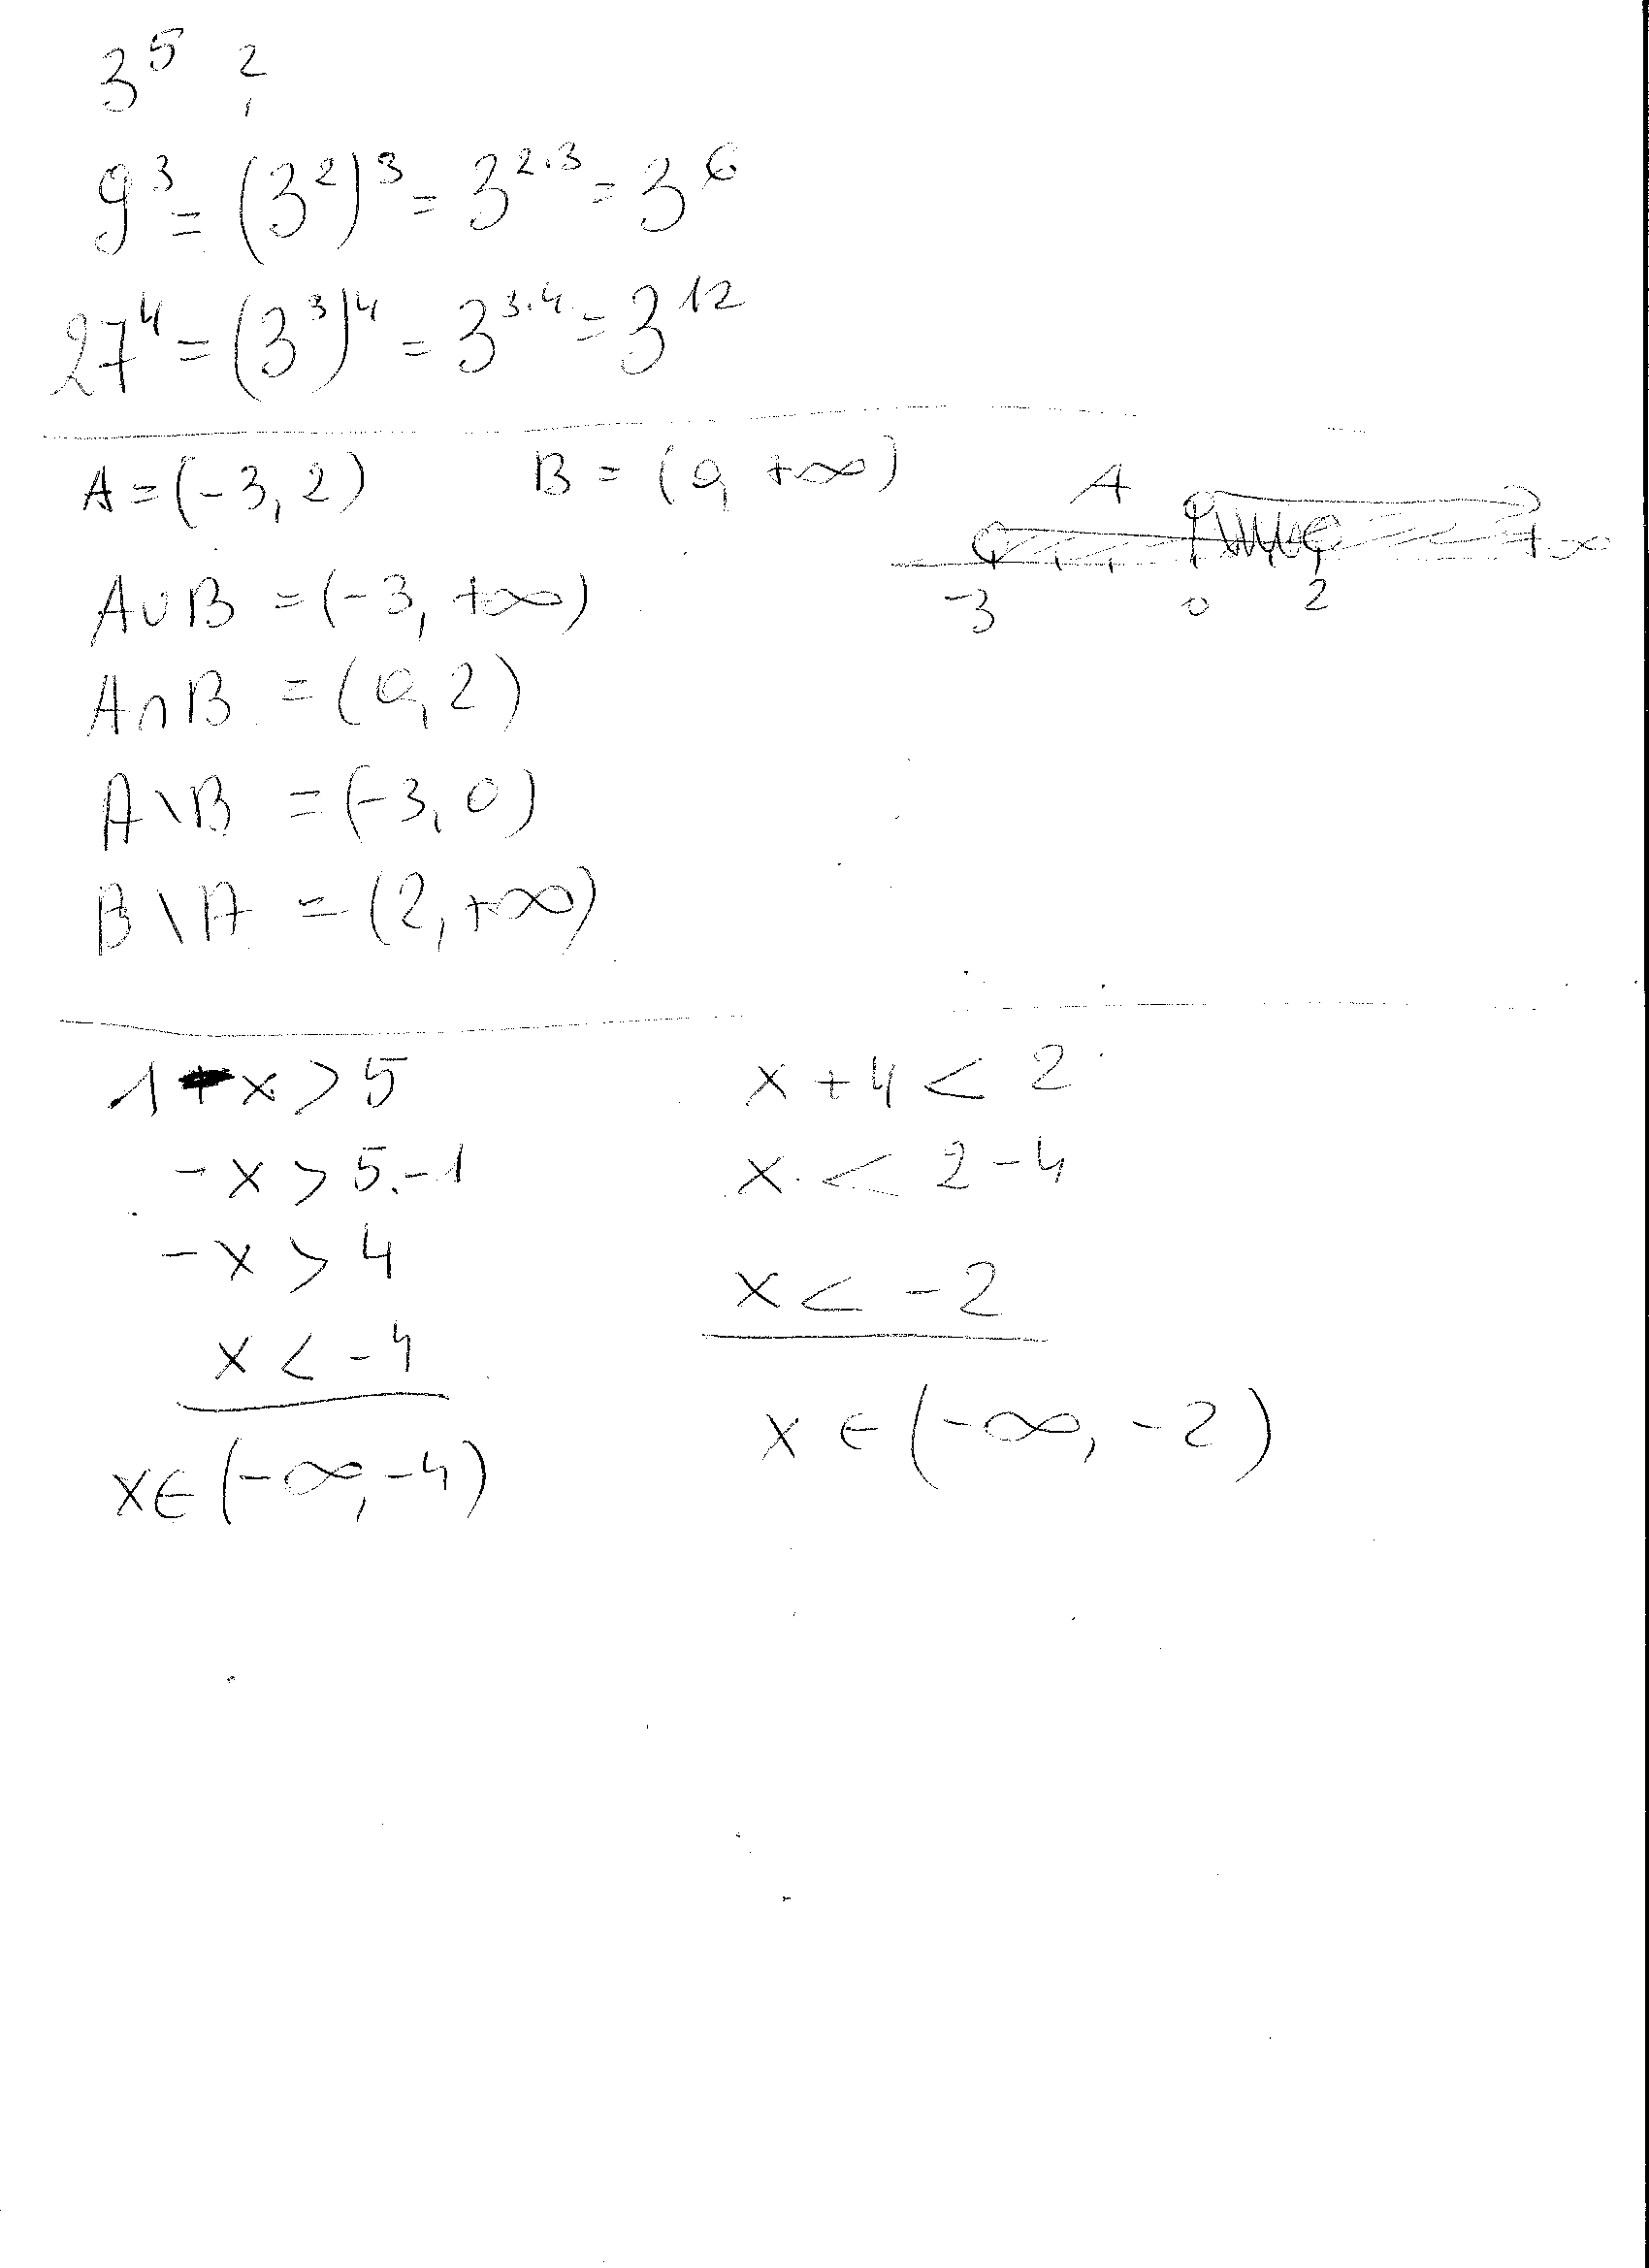 3⁵ ?
9³ = (3²)³ = 3²·³ = 3⁶
27⁴ = (3³)⁴ = 3³·⁴ = 3¹²
A = (-3, 2) B = (0, +∞)
A
-3 0 2 +∞
A∪B = (-3, +∞)
A∩B = (0, 2)
A\B = (-3, 0)
B\A = (2, +∞)
1 - x > 5
-x > 5 - 1
-x > 4
x < -4
x ∈ (-∞, -4)
x + 4 < 2
x < 2 - 4
x < -2
x ∈ (-∞, -2)